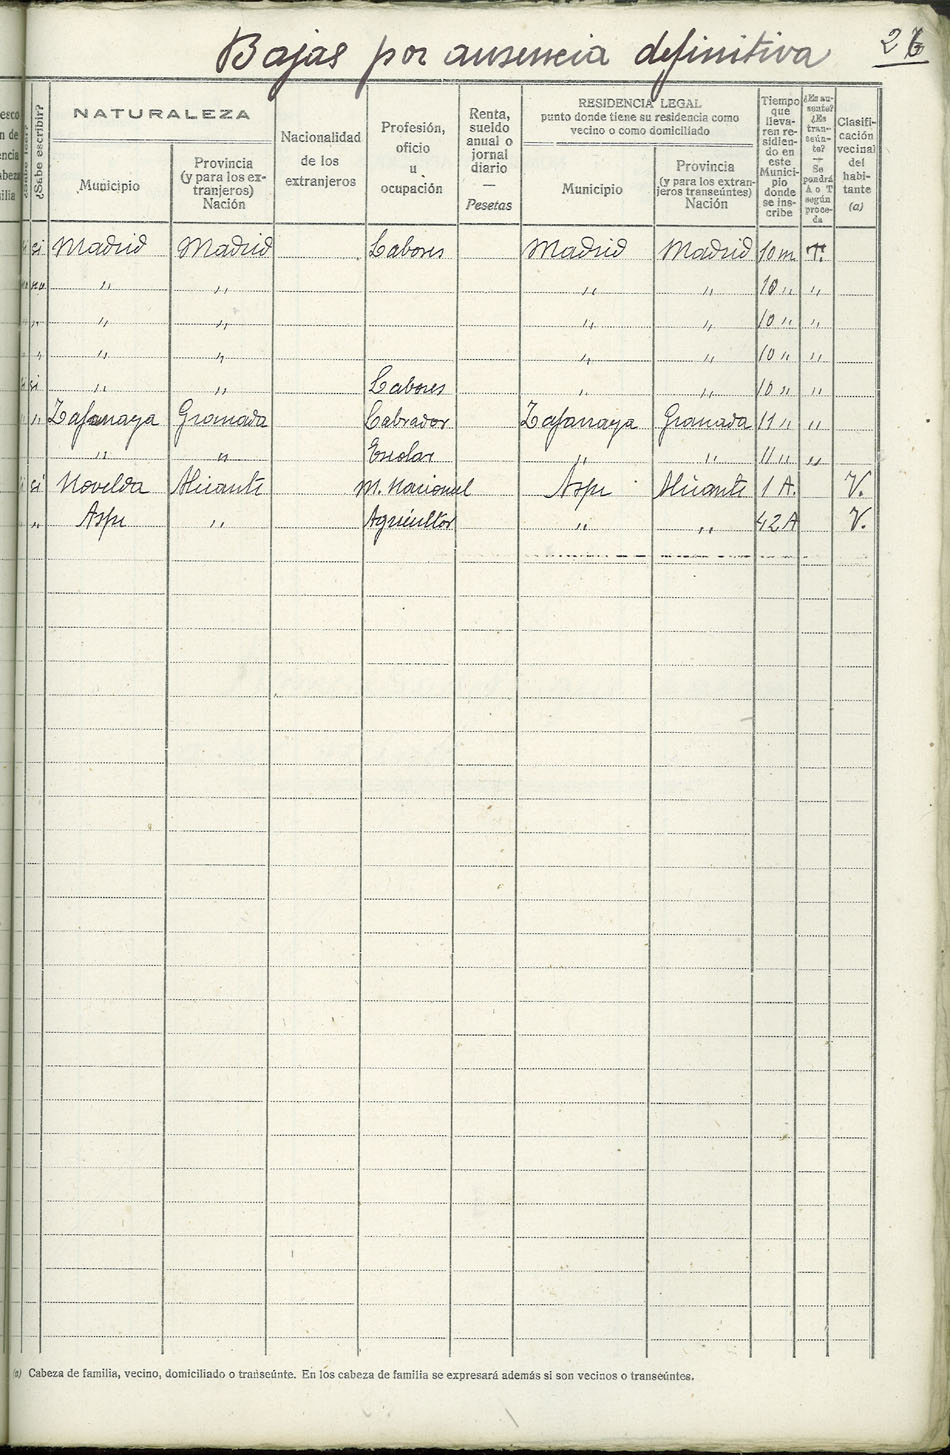 Bajas por ausencia definitiva
26
esco
n de
encia
abeza
ilia
¿Sabe leer?
¿Sabe escribir?
NATURALEZA
Municipio
Provincia
(y para los ex-
tranjeros)
Nación
Nacionalidad
de los
extranjeros
Profesión,
oficio
u
ocupación
Renta,
sueldo
anual o
jornal
diario
—
Pesetas
RESIDENCIA LEGAL
punto donde tiene su residencia como
vecino o como domiciliado
Municipio
Provincia
(y para los extran-
jeros transeúntes)
Nación
Tiempo
que
lleva-
ren re-
sidien-
do en
este
Munici-
pio
donde
se ins-
cribe
¿Es au-
sente?
¿Es
tran-
seún-
te?
—
Se
pondrá
A o T
según
proce-
da
Clasifi-
cación
vecinal
del
habi-
tante
(a)
si Madrid Madrid Labores Madrid Madrid 10 m. T.
no " " " " 10 " "
" " " " " 10 " "
" " " " " 10 " "
si " " Labores " " 10 " "
" Zafarraya Granada Labrador Zafarraya Granada 11 " "
" " Escolar " " 11 " "
si Novelda Alicante M. Nacional Aspe Alicante 1 A. V.
" Aspe " Agricultor " " 42 A V.
(a) Cabeza de familia, vecino, domiciliado o transeúnte. En los cabeza de familia se expresará además si son vecinos o transeúntes.